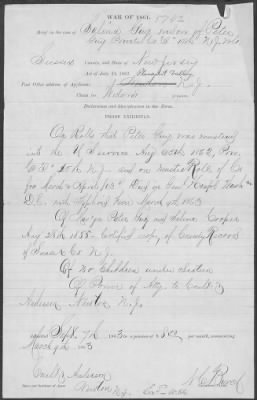 WAR OF 1861. 5742
Brief in the case of Salina Guy widow of Peter
Guy Private Co "D" 15th N.J. Vols.
Sussex County, and State of New Jersey
Act of July 14, 1862.
Post Office address of Applicant: N.J.
Claim for Widow
Declaration and Identification in Due Form.
PROOF EXHIBITED.
On Rolls that Peter Guy was mustered
into the U S service Aug 25th 1862, Priv.
Co "D" 15th N.J. and on Muster Roll of Co
for March & April 1863 Died in Hosp Wash
D.C. with Typhoid fever March 9th 1863
Of Marge Peter Guy and Salina Cooper
Aug 28th 1855 Certified copy, of County Record
of Sussex Co N.J.
Of No Children under sixteen
Of Power of Atty. to Coult &
Anderson Newton N.J.
Sept 7th 1863 to a pension of $8.00 per month, commencing
March 9th 1863
Coult & Anderson
Newton N.J.